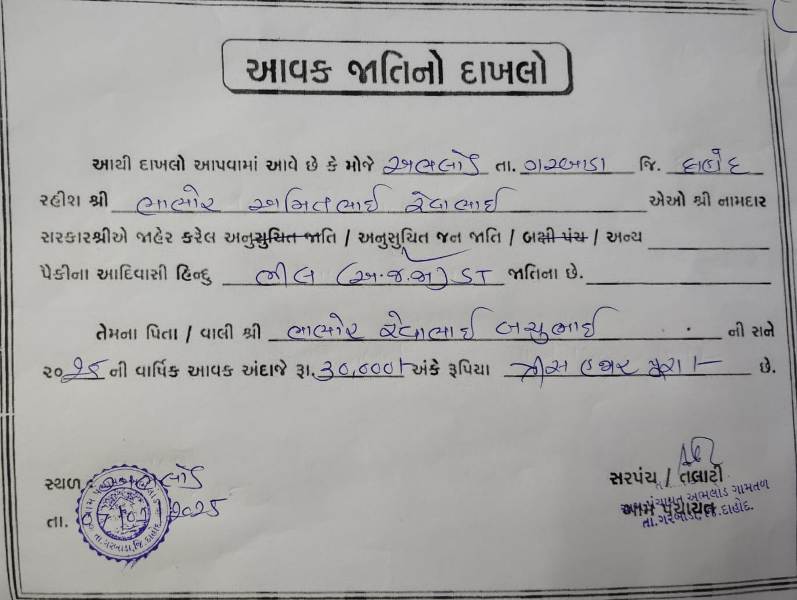 આવક જાતિનો દાખલો
આથી દાખલો આપવામાં આવે છે કે મોજે અભલોડ તા. ગરબાડા જિ. દાહોદ
રહીશ શ્રી ભાભોર અમિતભાઈ રેવાભાઈ એઓ શ્રી નામદાર
સરકારશ્રીએ જાહેર કરેલ અનુસુચિત જાતિ / અનુસુચિત જન જાતિ / બક્ષી પંચ / અન્ય
પૈકીના આદિવાસી હિન્દુ ભીલ (અ.જ.જા) ST જાતિના છે.
તેમના પિતા / વાલી શ્રી ભાભોર રેવાભાઈ બચુભાઈ ની સને
૨૦૨૫ ની વાર્ષિક આવક અંદાજે રૂા. ૩૦,૦૦૦/- અંકે રૂપિયા ત્રીસ હજાર પુરા /- છે.
સ્થળ : અભલોડ
તા. 2025
સરપંચ / તલાટી
ગ્રામ પંચાયત
ગ્રામ પંચાયત અભલોડ ગામતળ
તા.ગરબાડા, જિ.દાહોદ.
તા.ગરબાડા,જિ.દાહોદ